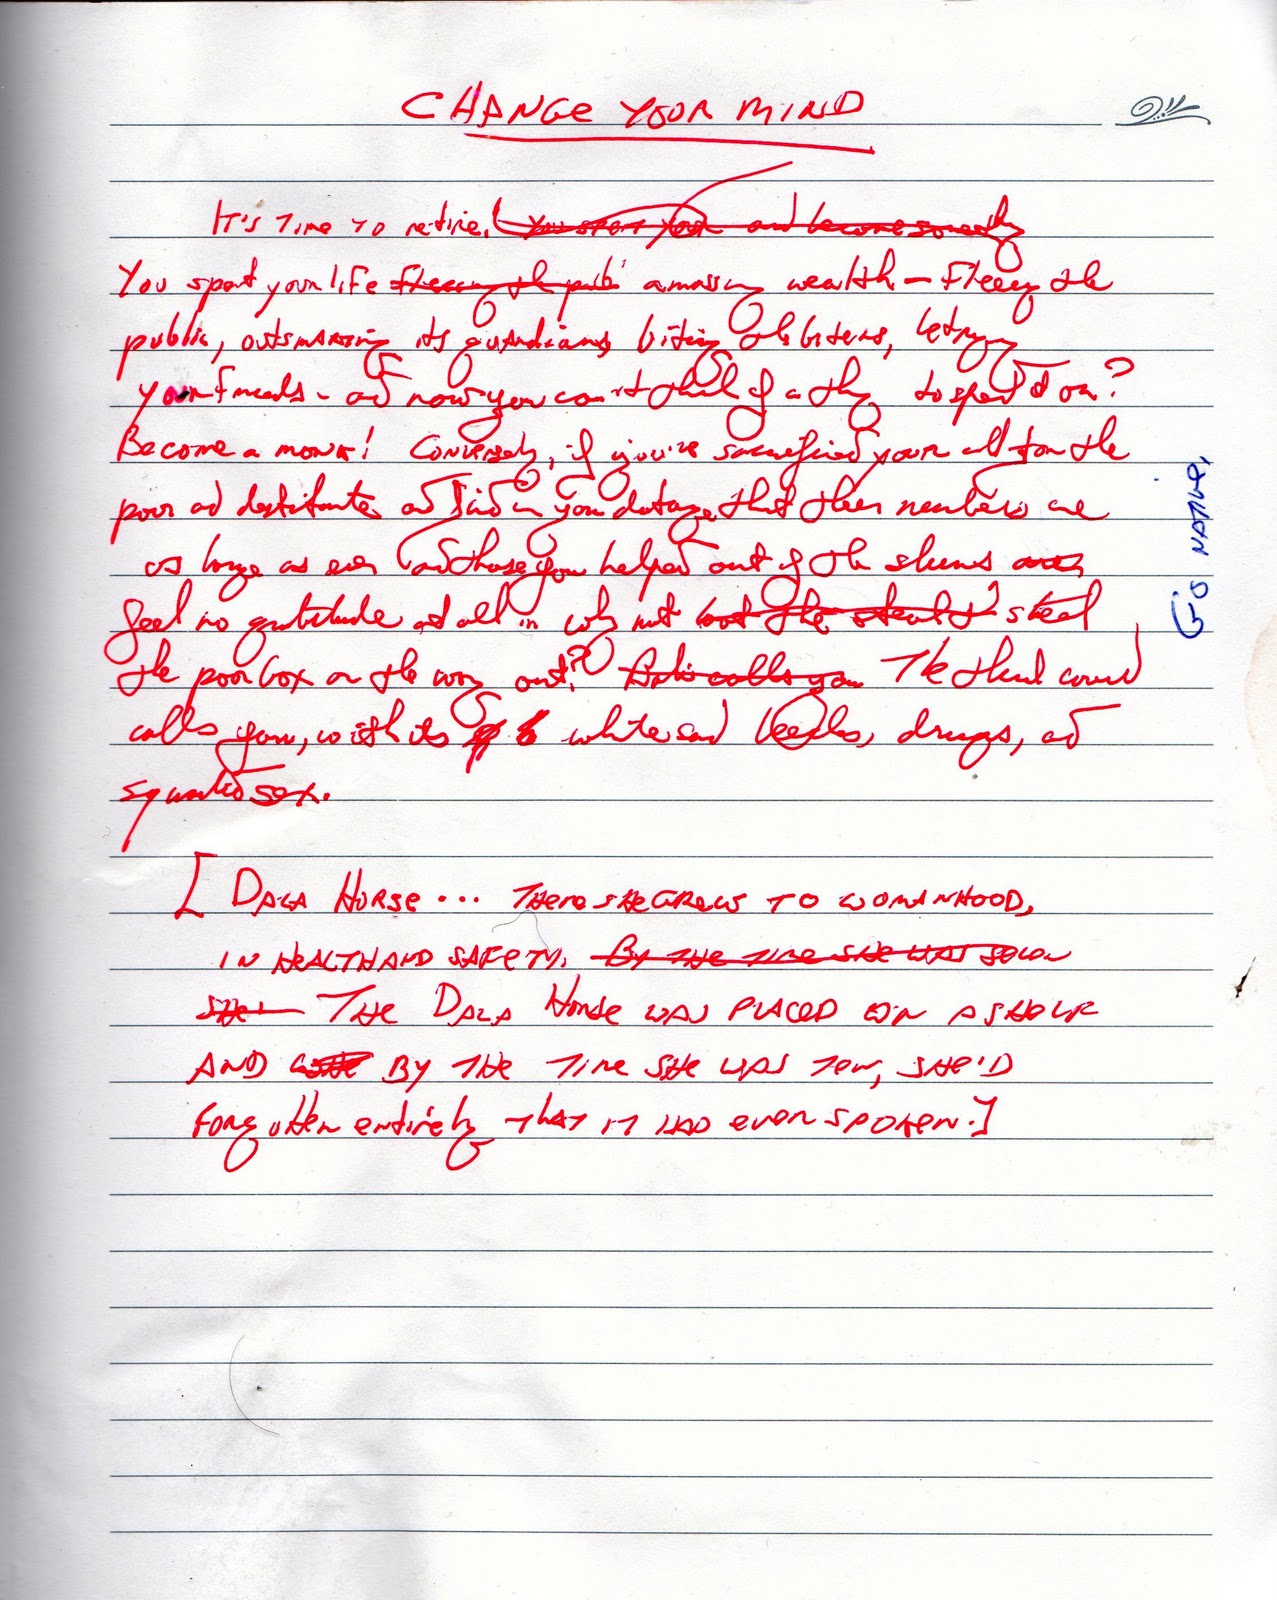 CHANGE YOUR MIND
It's time to retire. You spent your and become somebody
You spent your life fleecing the publi amassing wealth — fleecing the
public, outsmarting its guardians, biting the biters, betraying
your friends - and now you can't think of a thing to spend it on?
Become a monk! Conversely, if you've sacrificed your all for the
poor and destitute and find in your dotage that their numbers are
as large as ever and those you helped out of the slums
feel no gratitude at all why not steal
the poor box on the way out? The third world
calls you, with its white sand beaches, drugs, and
squalid sex.
GO NATIVE.
[DALA HORSE... THERE SHE GREW TO WOMANHOOD,
IN HEALTH AND SAFETY. BY THE TIME SHE WAS
SHE THE DALA HORSE WAS PLACED ON A SHELF
AND BY THE TIME SHE WAS TEN, SHE'D
FORGOTTEN ENTIRELY THAT IT HAD EVER SPOKEN.]